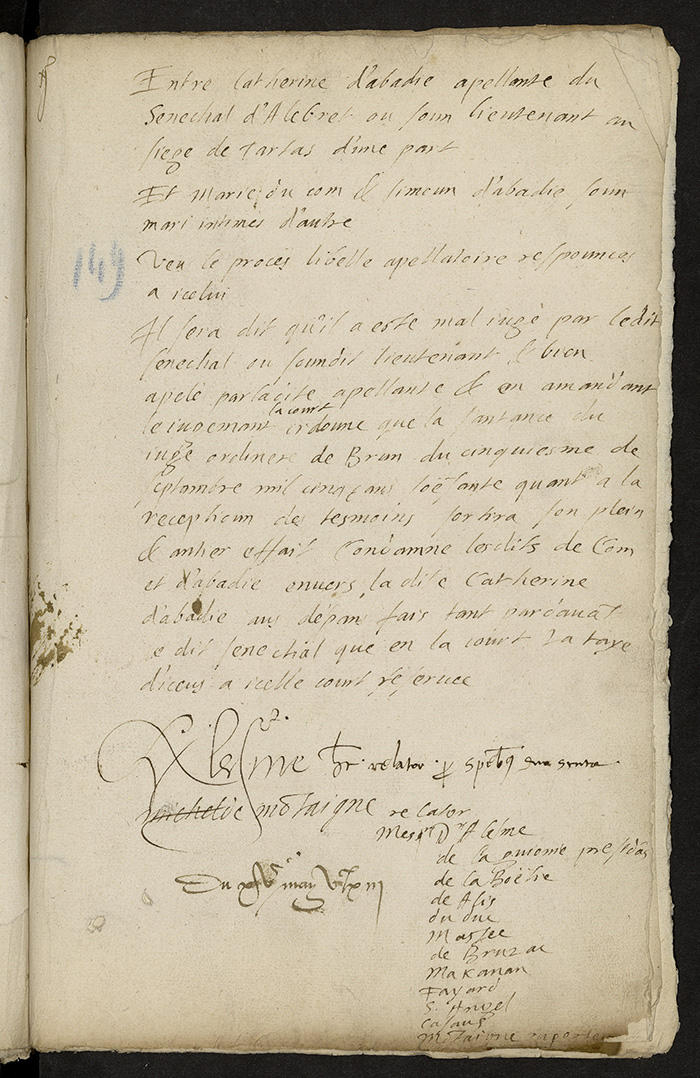 Entre Catherine d'abadie apellante du
Senechal d'Alebret ou soun lieutenant au
siege de Tartas d'une part
Et Marie du com & simoun d'abadie soun
mari intimés d'autre
Veu le procés libelle apellatoire respounces
a icelui
149
Il sera dit qu'il a esté mal iugé par ledit
senechal ou soundit lieutenant & bien
apelé par la dite apellante & en amandant
la court
le iugemant ordoune que la santance du
iuge ordinere de Brun du cinquiesme de
septambre mil cinq cans soessante quant a la
receptioun des tesmoins sortira son plein
& antier effait Condamne lesdits de Com
et d'abadie envers la dite Catherine
d'abadie aus dépans fais tant pardauāt
le dit senechal que en la court La taxe
d'iceus a icelle court réseruee
Alesme relator
Michel de Mōtaigne relator
Messrs D. Alesme
de la guionie presidās
de la Boëtie
de Alis
du duc
Massee
de Bruzac
Makanan
Fayard
S. Angel
Casaus
Mōtaigne raporteur
Du may